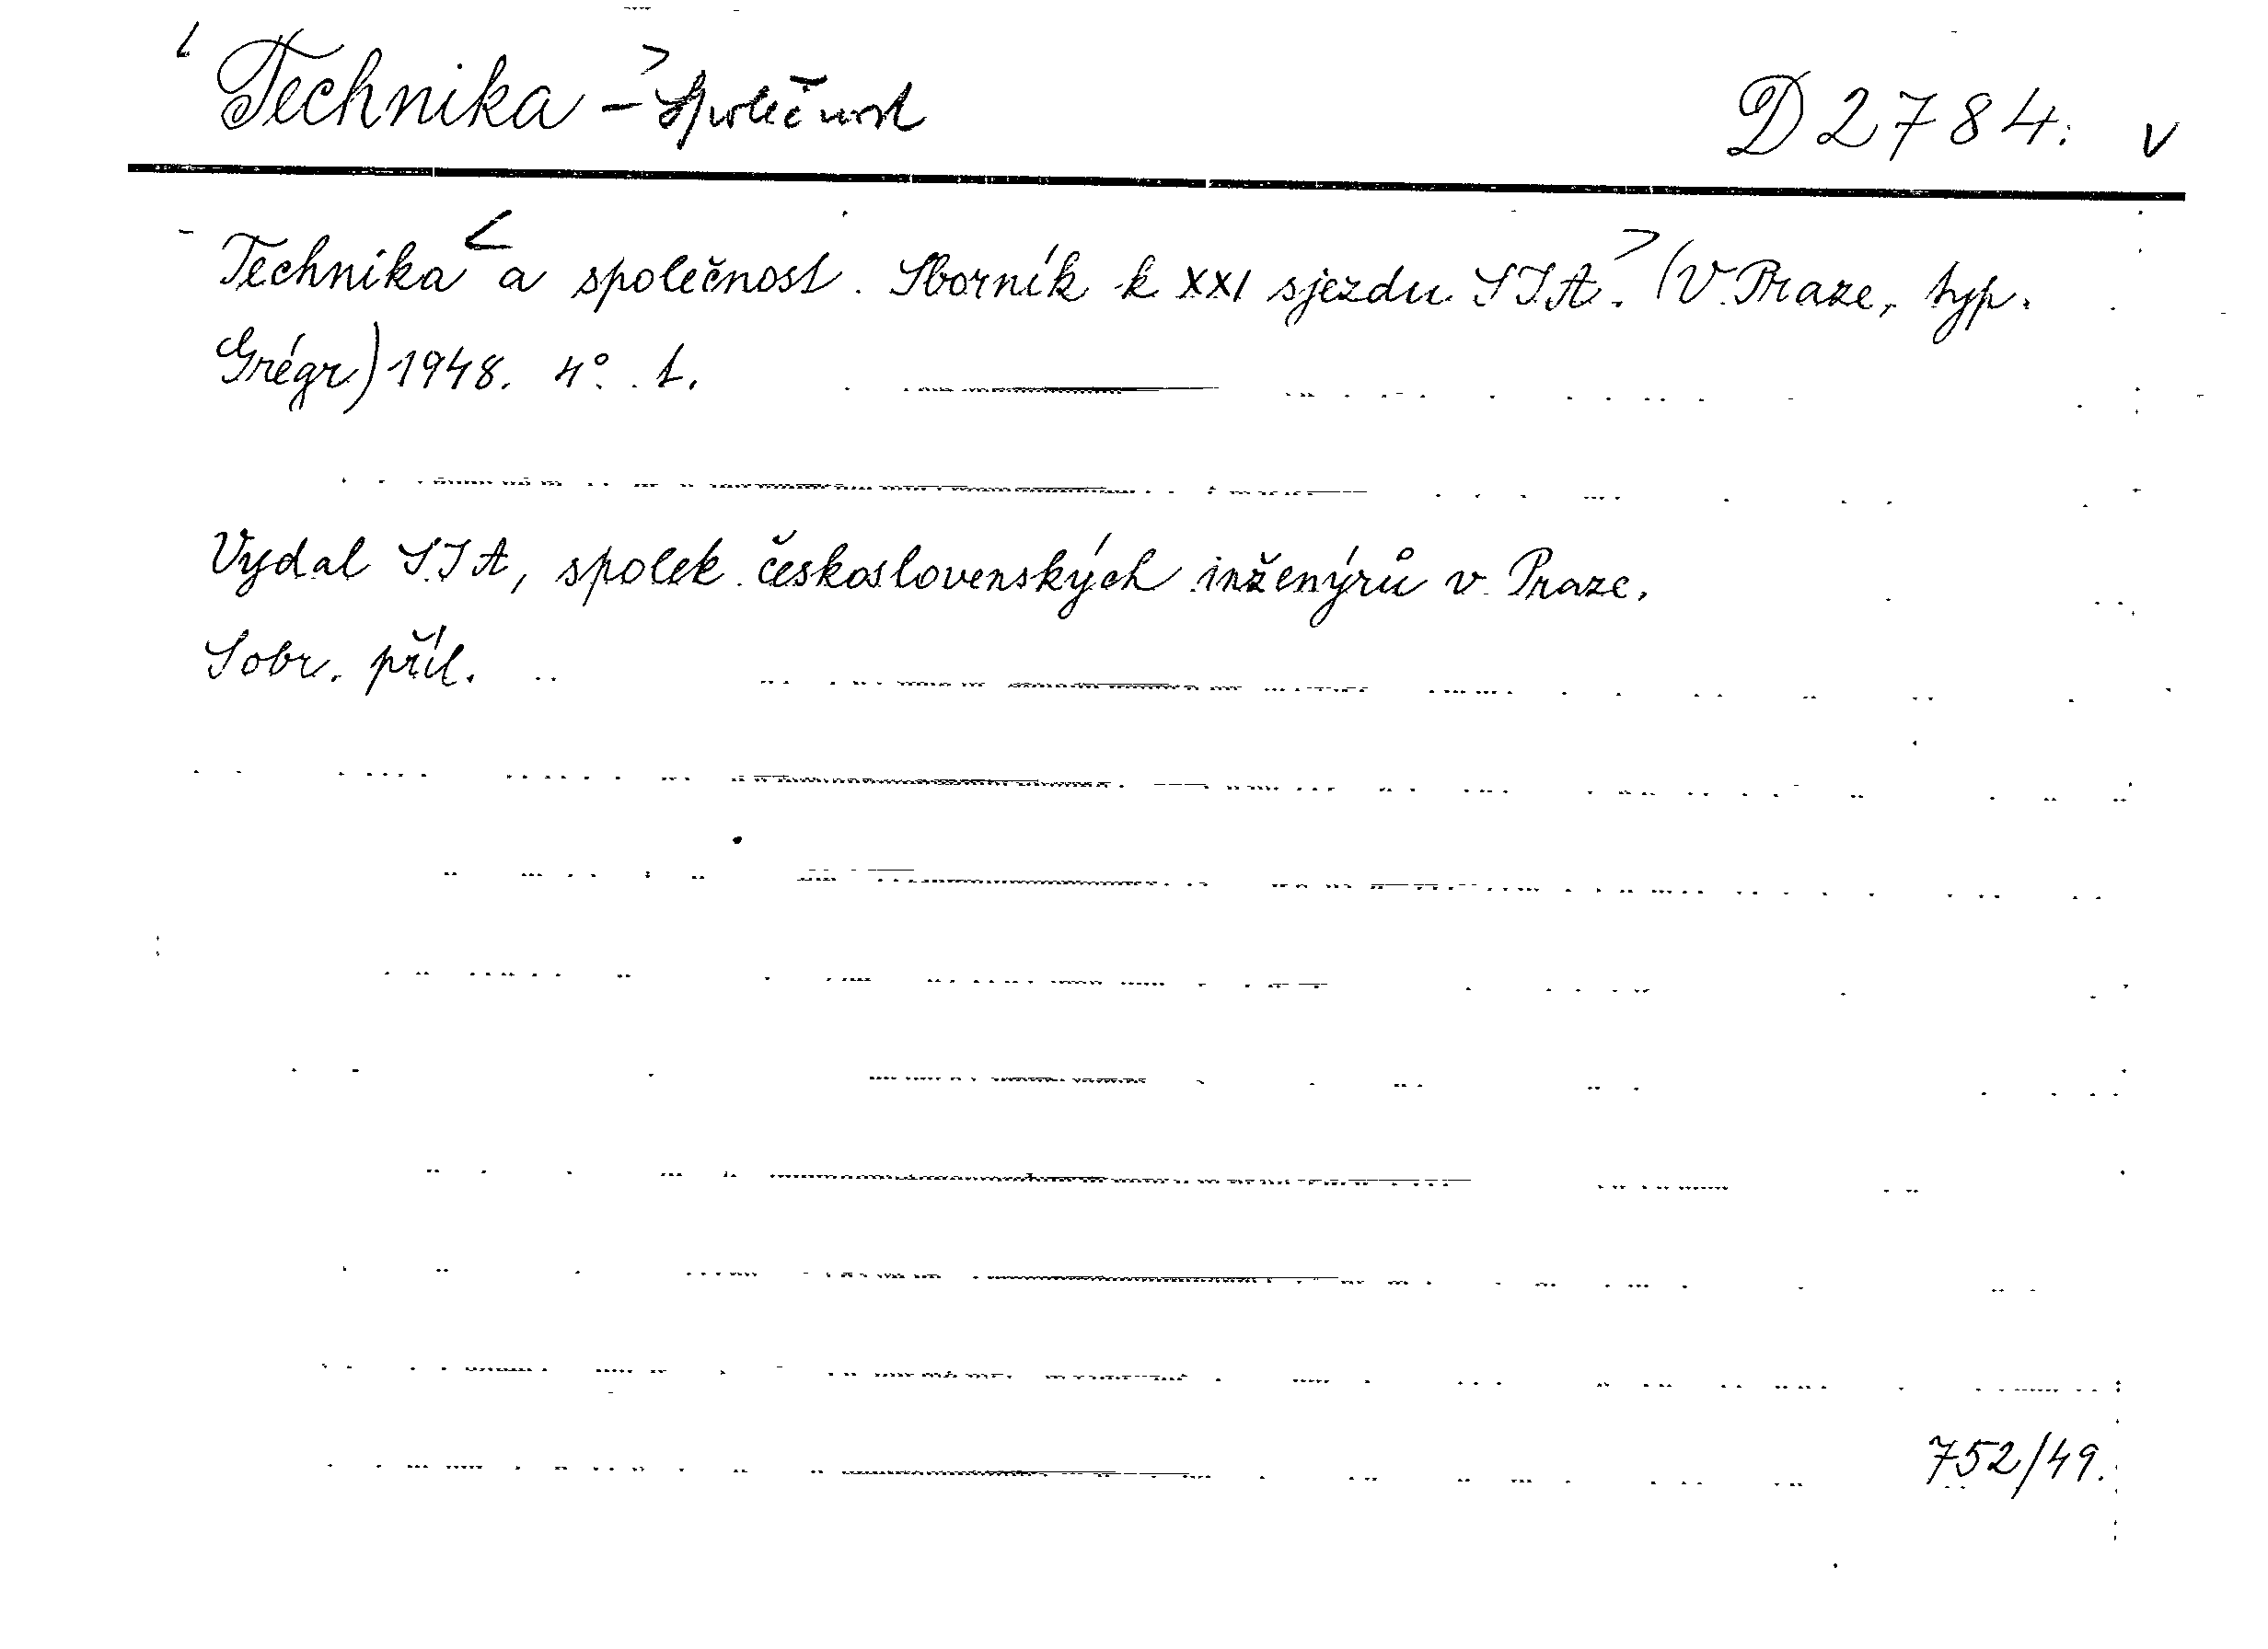 Technika - Společnost D 2784. v
Technika a společnost. Sborník k XXI sjezdu SIA. (V Praze, typ.
Grégr) 1948. 4°. 1.
Vydal SIA, spolek československých inženýrů v Praze.
S obr. příl.
752/49.